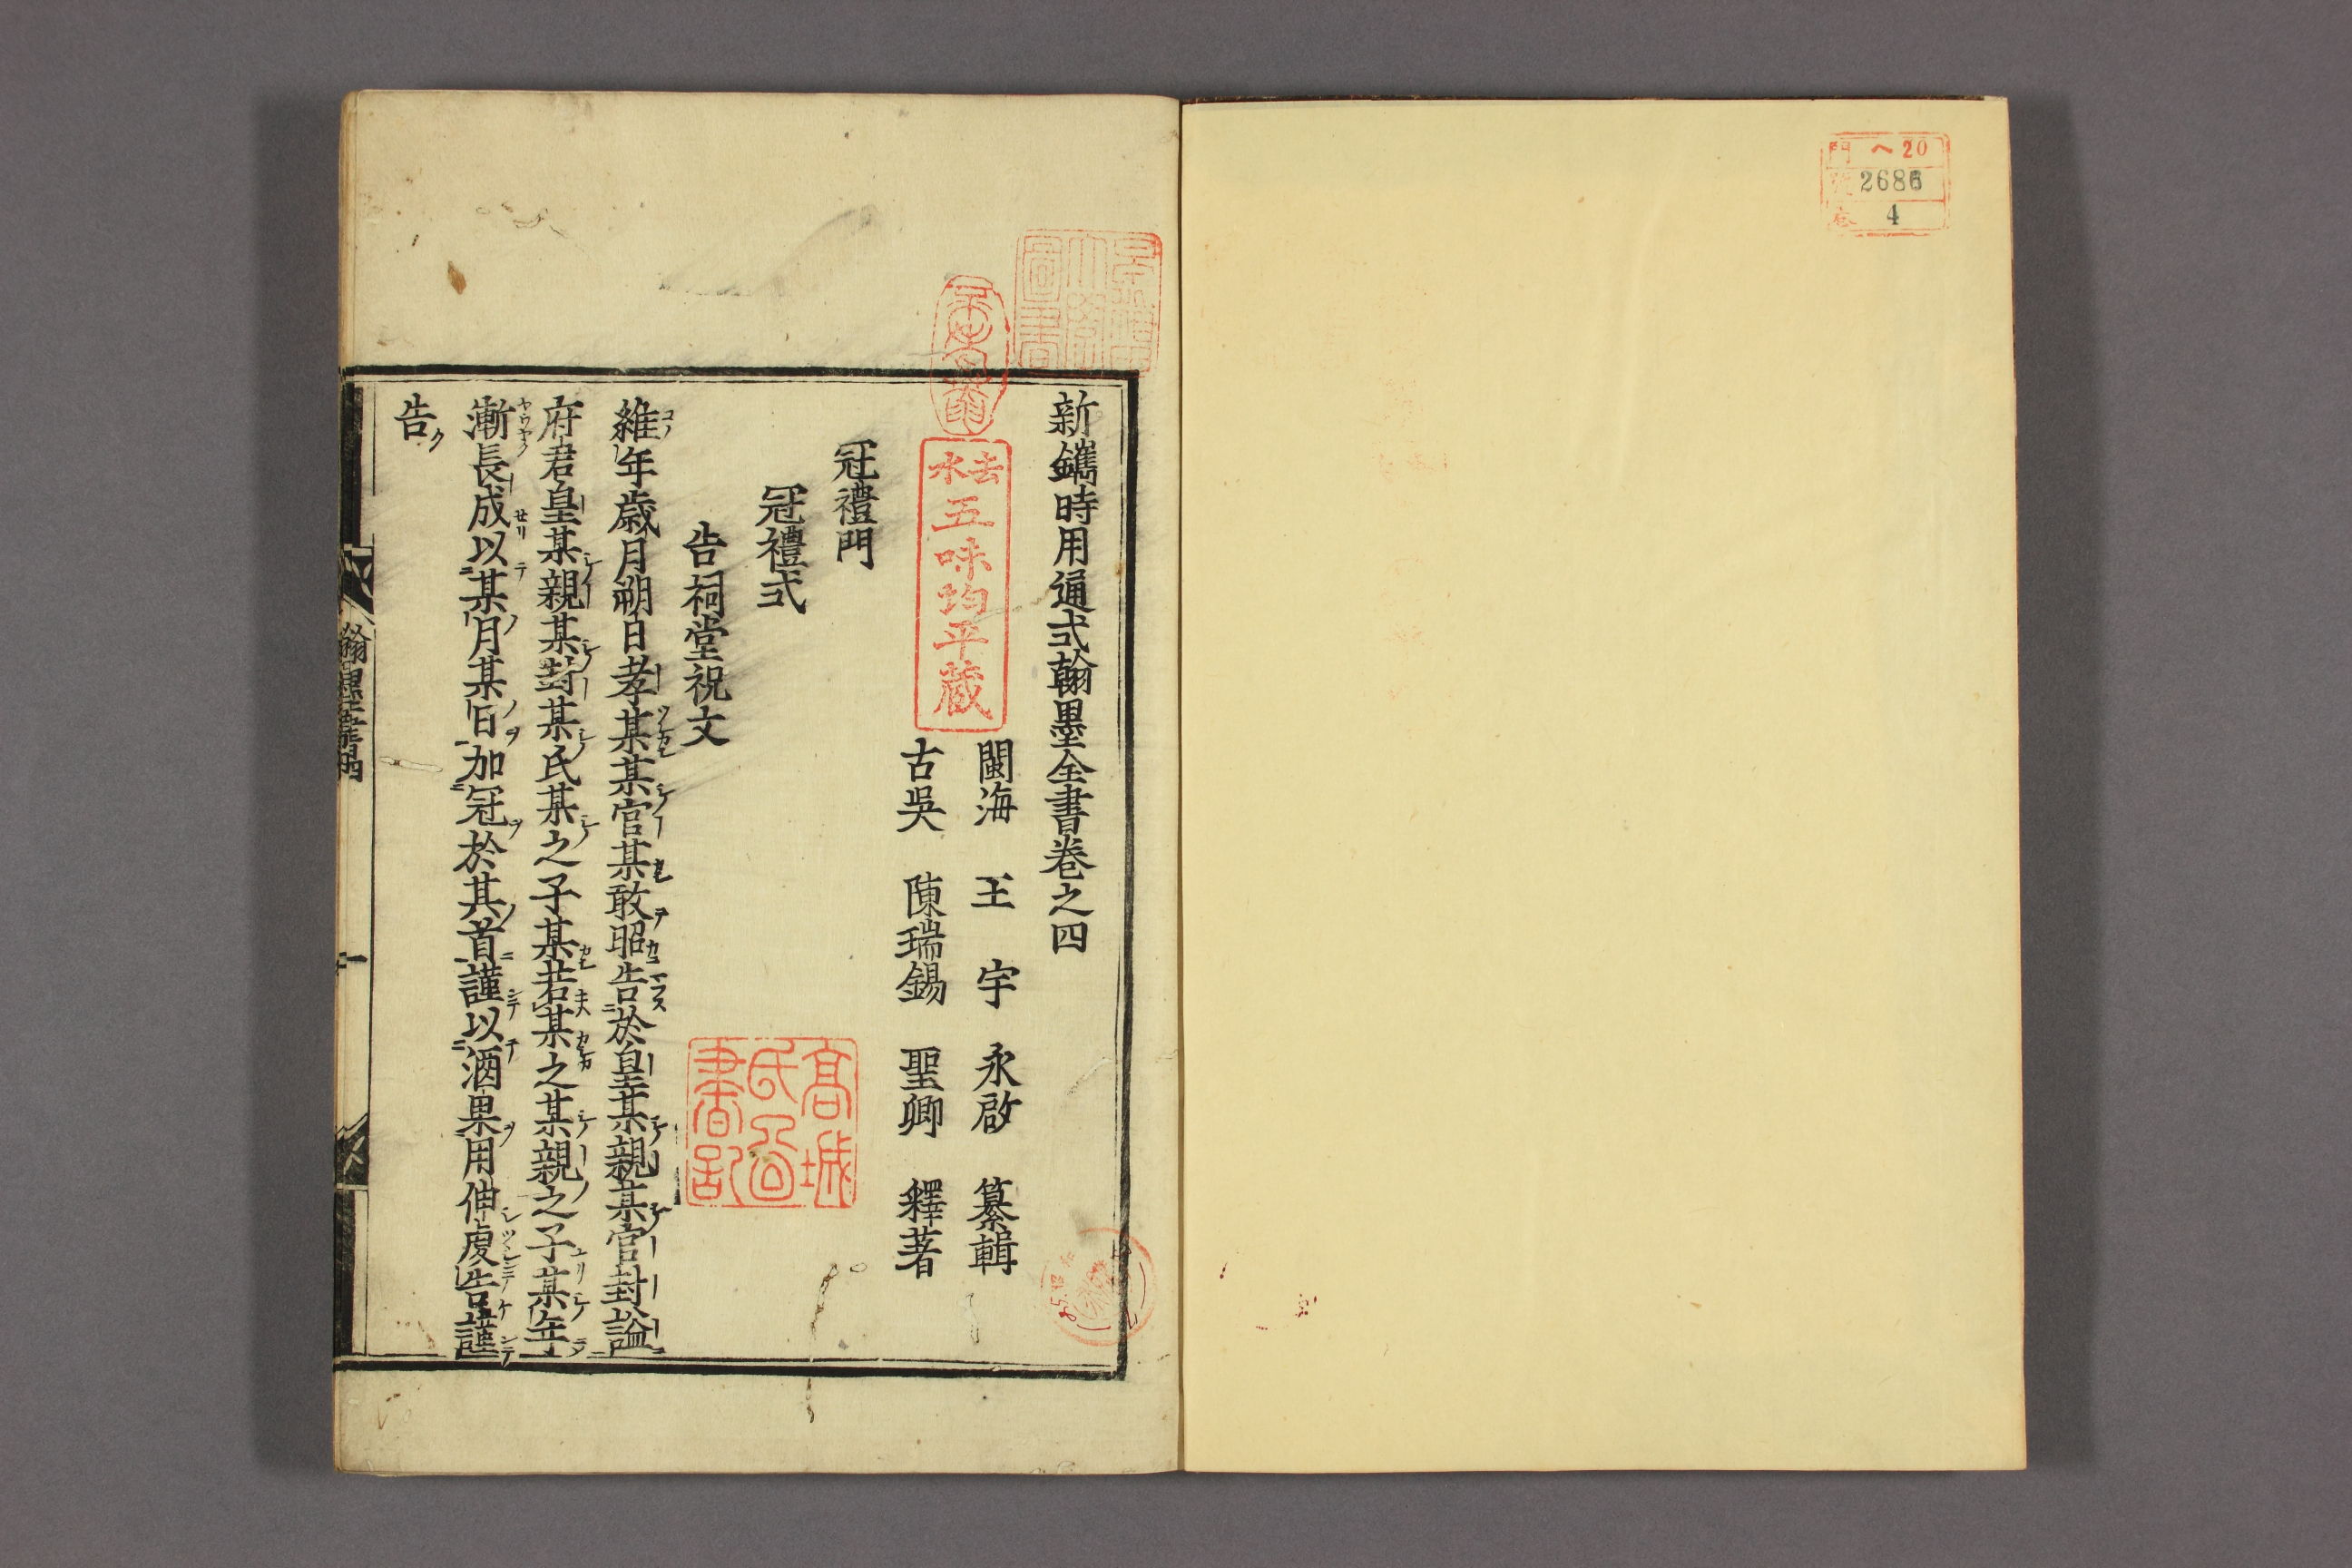 門 ヘ20
號 2686
卷 4
新鐫時用通式翰墨全書卷之四
閩海 王宇 永啟 纂輯
古吳 陳瑞錫 聖卿 釋著
去水
五味均平蔵
高城氏公書記
冠禮門
冠禮式
告祠堂祝文
維年歲月朔日孝某某官某敢昭告於皇某親某官封謚
府君皇某親某封某氏某之子某若某之某親之子某年
漸長成以某月某日加冠於其首謹以酒果用伸虔告謹
告
翰墨書四
一